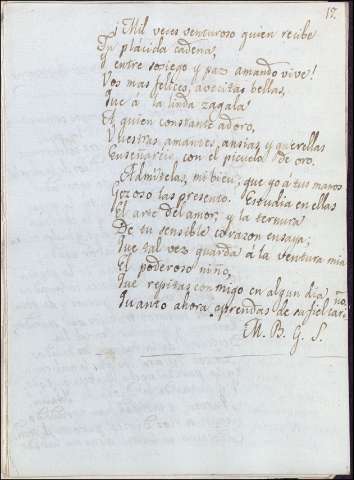 17.
¡Mil veces venturoso quien recibe
Tu plácida cadena,
Y entre sosiego y paz amando vive!
Vos mas felices, avecitas bellas,
Que á la linda zagala
A quien constante adoro,
Vuestras amantes ansias, y querellas
Enseñareis con el picuelo de oro.
Admitelas, mi bien; que yo á tus manos
Gozoso las presento. Estudia en ellas
El arte del amor; y la ternura
De tu sensible corazon ensaya;
Que tal vez guarda á la ventura mia
El poderoso niño,
Que repitas conmigo en algun dia
Quanto ahora aprendas de su fiel cariño.
M. B. G. S.